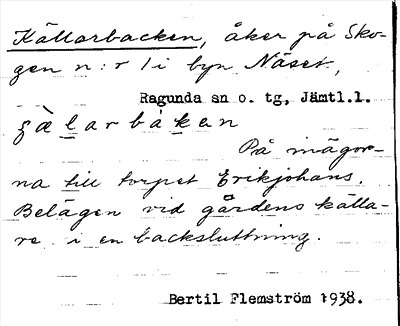 Källarbacken, åker på Sko-
gen n:r 1 i byn Näset,
Ragunda sn o. tg, Jämtl.l.
På inägor-
na till torpet Erikjohans.
Belägen vid gårdens källa-
re i en backsluttning.
Bertil Flemström 1938.